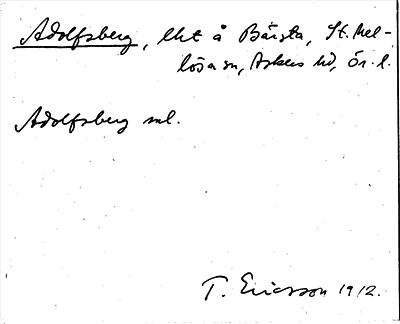 Adolfsberg, lht å Bärsta, St. Mel-
lösa sn, Askers hd, Ör. l.
Adolfsberg sml.
T. Ericsson 1912.